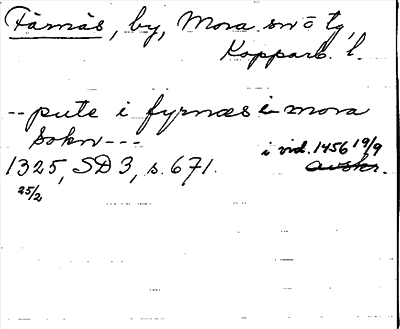 Färnäs, by, Mora sn o tg,
Kopparb. l.
-- pute i fyrnæs i mora
sokn ---
i vid. 1456 19/9
1325, SD 3, s. 671. avskr.
25/2